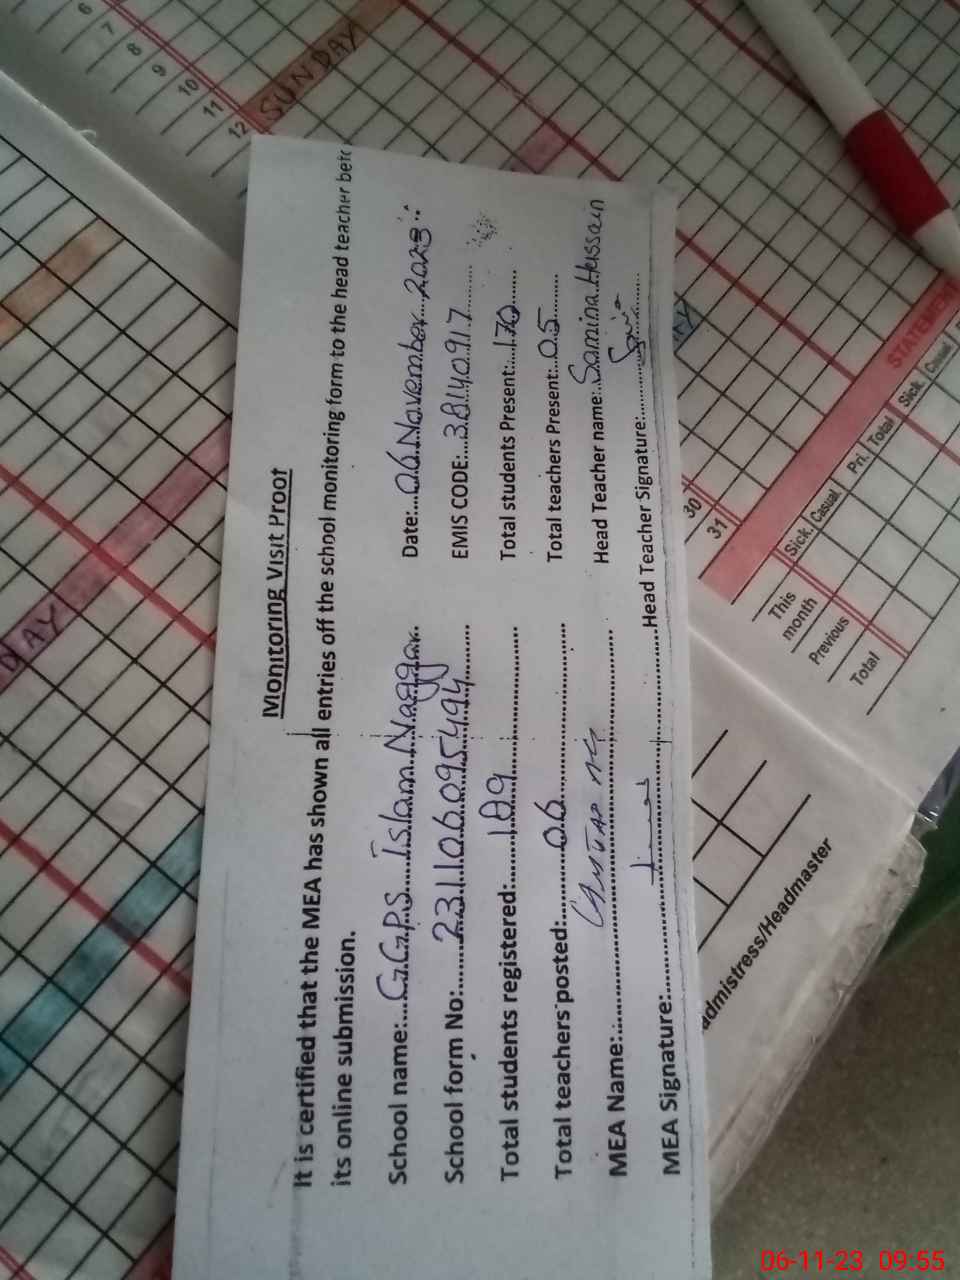 6
7
8
9
10
11
12
SUNDAY
DAY
Monitoring Visit Proof
It is certified that the MEA has shown all entries off the school monitoring form to the head teacher befo
its online submission.
School name:....G.G.P.S Islam Naggar.. Date:....06 November 2023
School form No:......231106095494 EMIS CODE:....38140917
Total students registered:.......189 Total students Present:....170
Total teachers posted:.......06 Total teachers Present:..05
MEA Name: Head Teacher name:..Samina Hussain
MEA Signature: Head Teacher Signature:
30
31
STATEMENT
Sick. Casual Pri. Total Sick Casual
This month
Previous
Total
admistress/Headmaster
06-11-23 09:55